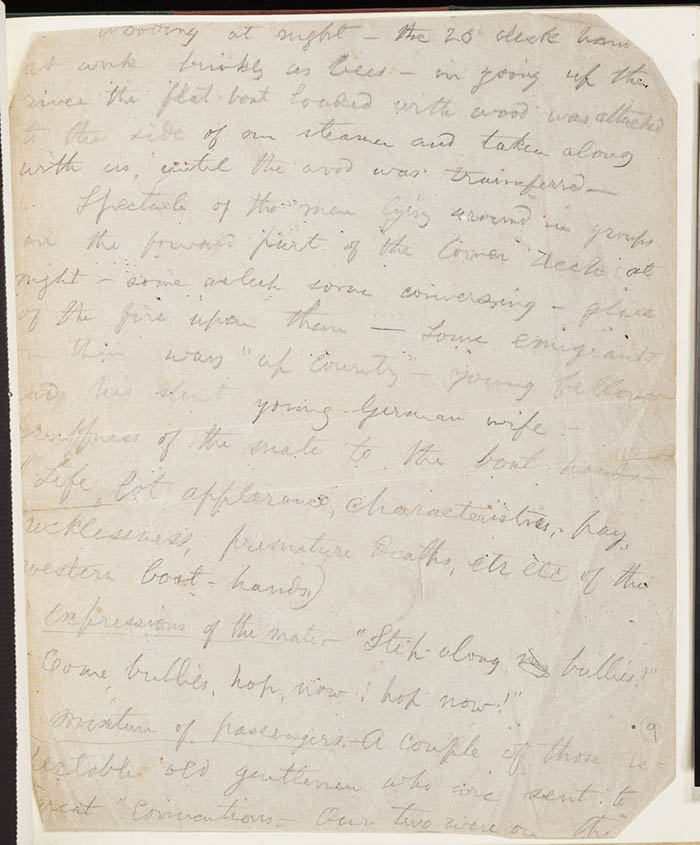 Wooding at night – the 20 deck hands
at work briskly as bees – in going up the
river the flat-boat loaded with wood was attached
to the side of our steamer and taken along
with us, until the wood was transferred –
Spectacle of the men lying around in groups
on the forward part of the lower deck at
night – some asleep some conversing – glare
of the fire upon them – Some emigrants
on their way "up country" – young fellow
and his stout young German wife –
gruffness of the mate to the boat hands –
Life, lot appearance, characteristics, pay,
recklessness, premature deaths, etc etc of the
western boat-hands)
Expressions of the mate – "Step along bullies!"
Come, bullies, hop, now! hop now!"
Mixture of passengers – A couple of those
old gentlemen who are sent to
great "Conventions – Our two were on the
9